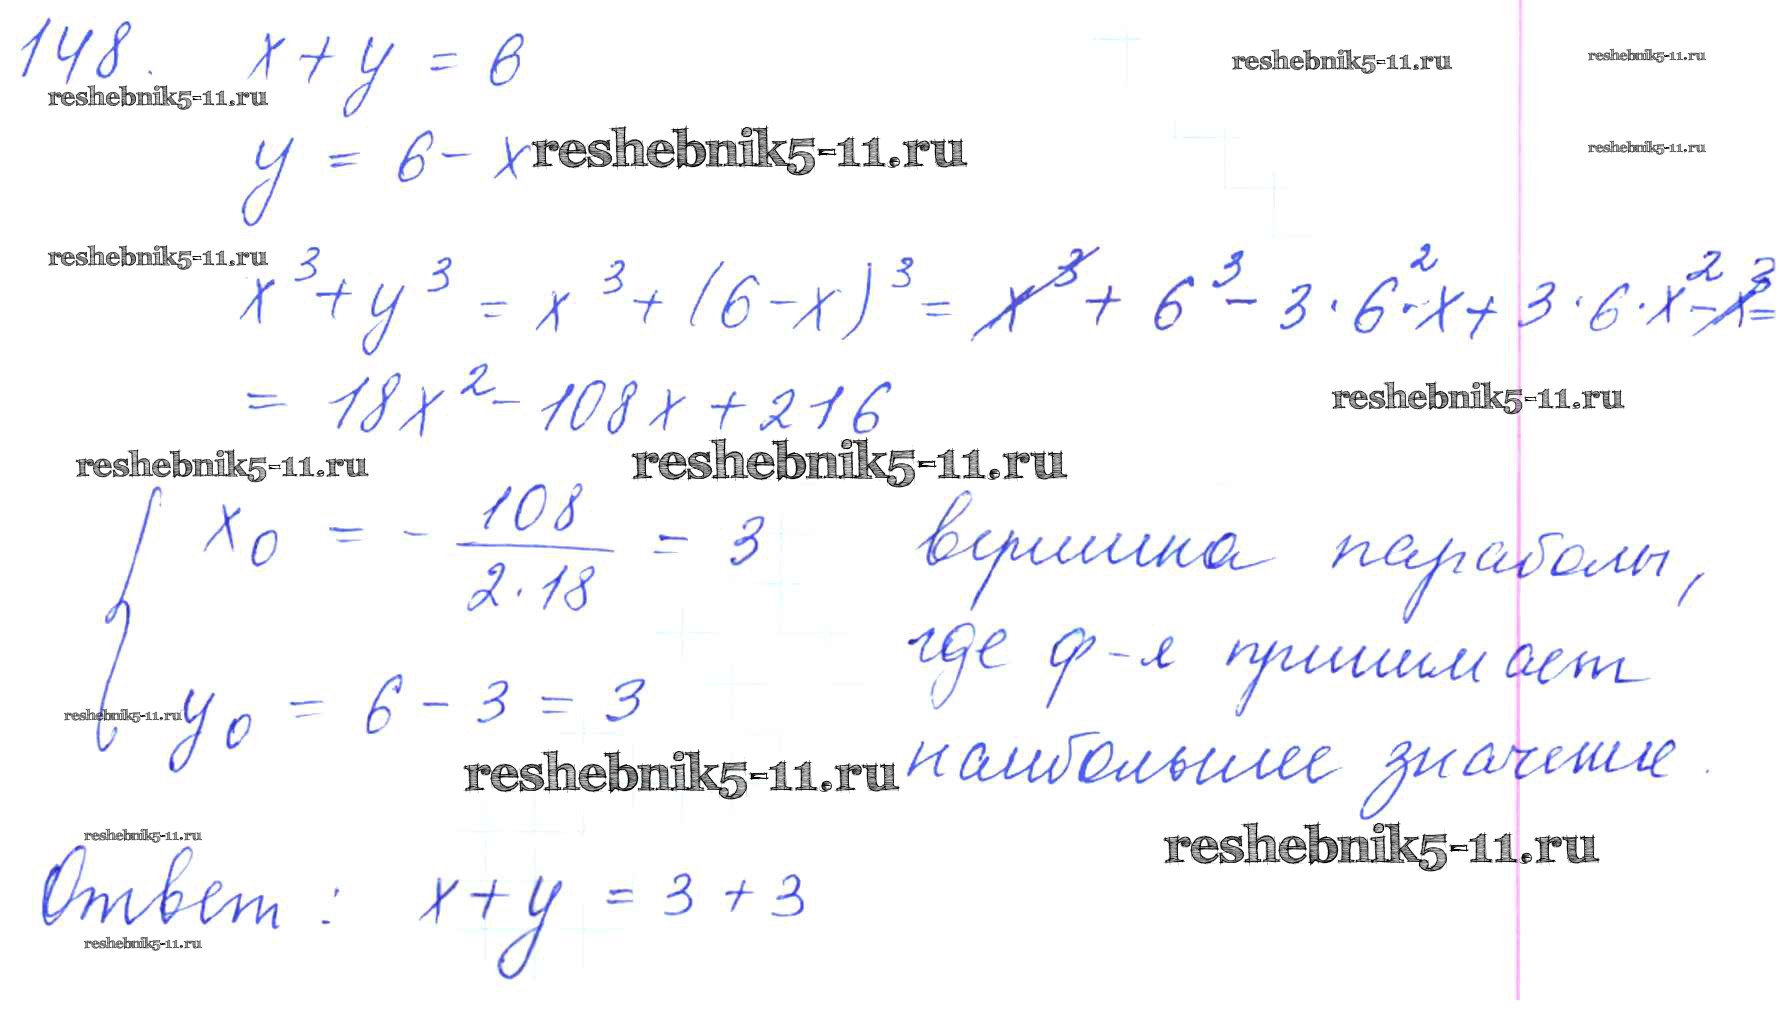 148. x + y = 6
reshebnik5-11.ru
reshebnik5-11.ru
reshebnik5-11.ru
y = 6 - x
reshebnik5-11.ru
reshebnik5-11.ru
reshebnik5-11.ru
x³ + y³ = x³ + (6 - x)³ = x³ + 6³ - 3 · 6² · x + 3 · 6 · x² - x³ =
= 18x² - 108x + 216
reshebnik5-11.ru
reshebnik5-11.ru
reshebnik5-11.ru
x₀ = - 108 / 2·18 = 3 вершина параболы,
где ф-я принимает
y₀ = 6 - 3 = 3
reshebnik5-11.ru
наибольшее значение.
reshebnik5-11.ru
reshebnik5-11.ru
reshebnik5-11.ru
Ответ: x + y = 3 + 3
reshebnik5-11.ru